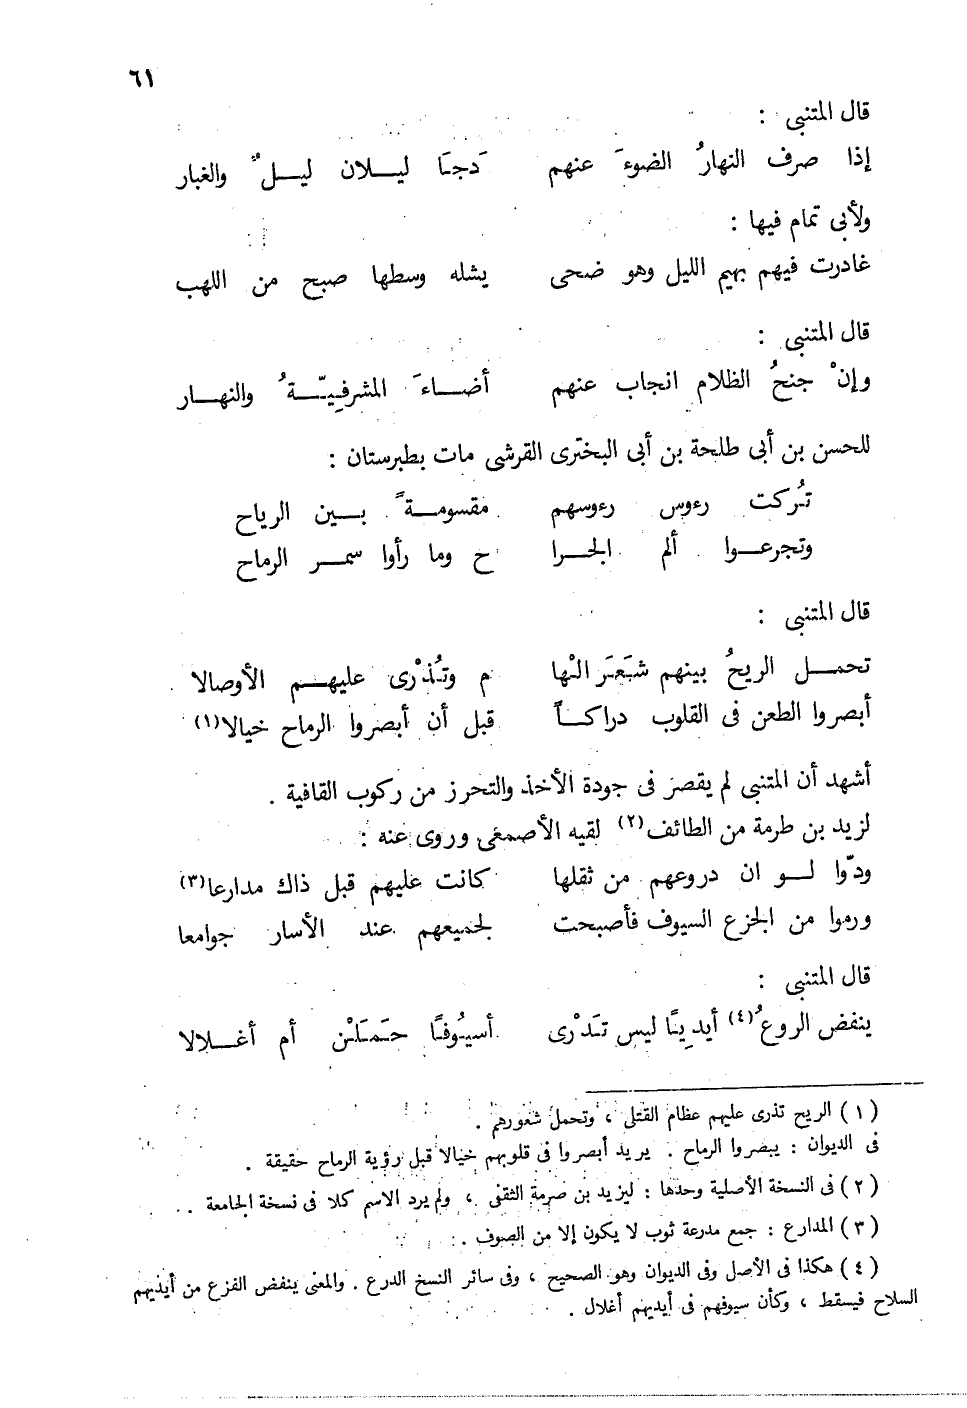 ٦١
قال المتنبى :
إذا صرف النهارُ الضوءَ عنهم دجَا ليــلان ليــلٌ والغبار
ولأبى تمام فيها :
غادرت فيهم بهيم الليل وهو ضحى يشله وسطها صبح من اللهب
قال المتنبى :
وإنْ جنحُ الظلام انجاب عنهم أضــاءَ المشرفِيّــةُ والنهــار
للحسن بن أبى طلحة بن أبى البخترى القرشى مات بطبرستان :
تُركت رءوس رءوسهم مقسومــةً بــين الرياح
وتجرعــوا ألم الجــرا ح وما رأوا سمــر الرماح
قال المتنبى :
تحمــل الريحُ بينهم شَعَرَ الْها م وتُذْرى عليهــم الأوصالا
أبصروا الطعن فى القلوب دراكــاً قبل أن أبصروا الرماح خيالا(١)
أشهد أن المتنبى لم يقصر فى جودة الأخذ والتحرز من ركوب القافية .
لزيد بن طرمة من الطائف(٢) لقيه الأصمعى وروى عنه :
ودّوا لــو ان دروعهم من ثقلها كانت عليهم قبل ذاك مدارعا(٣)
ورموا من الجزع السيوف فأصبحت لجميعهم عند الأسار جوامعا
قال المتنبى :
ينفض الروعُ(٤) أيدِيًا ليس تَدْرى أسيُوفًا حَمَلْن أم أغــلالا
(١) الريح تذرى عليهم عظام القتلى ، وتحمل شعورهم .
فى الديوان : يبصروا الرماح . يريد أبصروا فى قلوبهم خيالا قبل رؤية الرماح حقيقة .
(٢) فى النسخة الأصلية وحدها : ليزيد بن صرمة الثقفى ، ولم يرد الاسم كلا فى نسخة الجامعة .
(٣) المدارع : جمع مدرعة ثوب لا يكون إلا من الصوف .
(٤) هكذا فى الأصل وفى الديوان وهو الصحيح ، وفى سائر النسخ الدرع . والمعنى ينفض الفزع من أيديهم
السلاح فيسقط ، وكأن سيوفهم فى أيديهم أغلال .